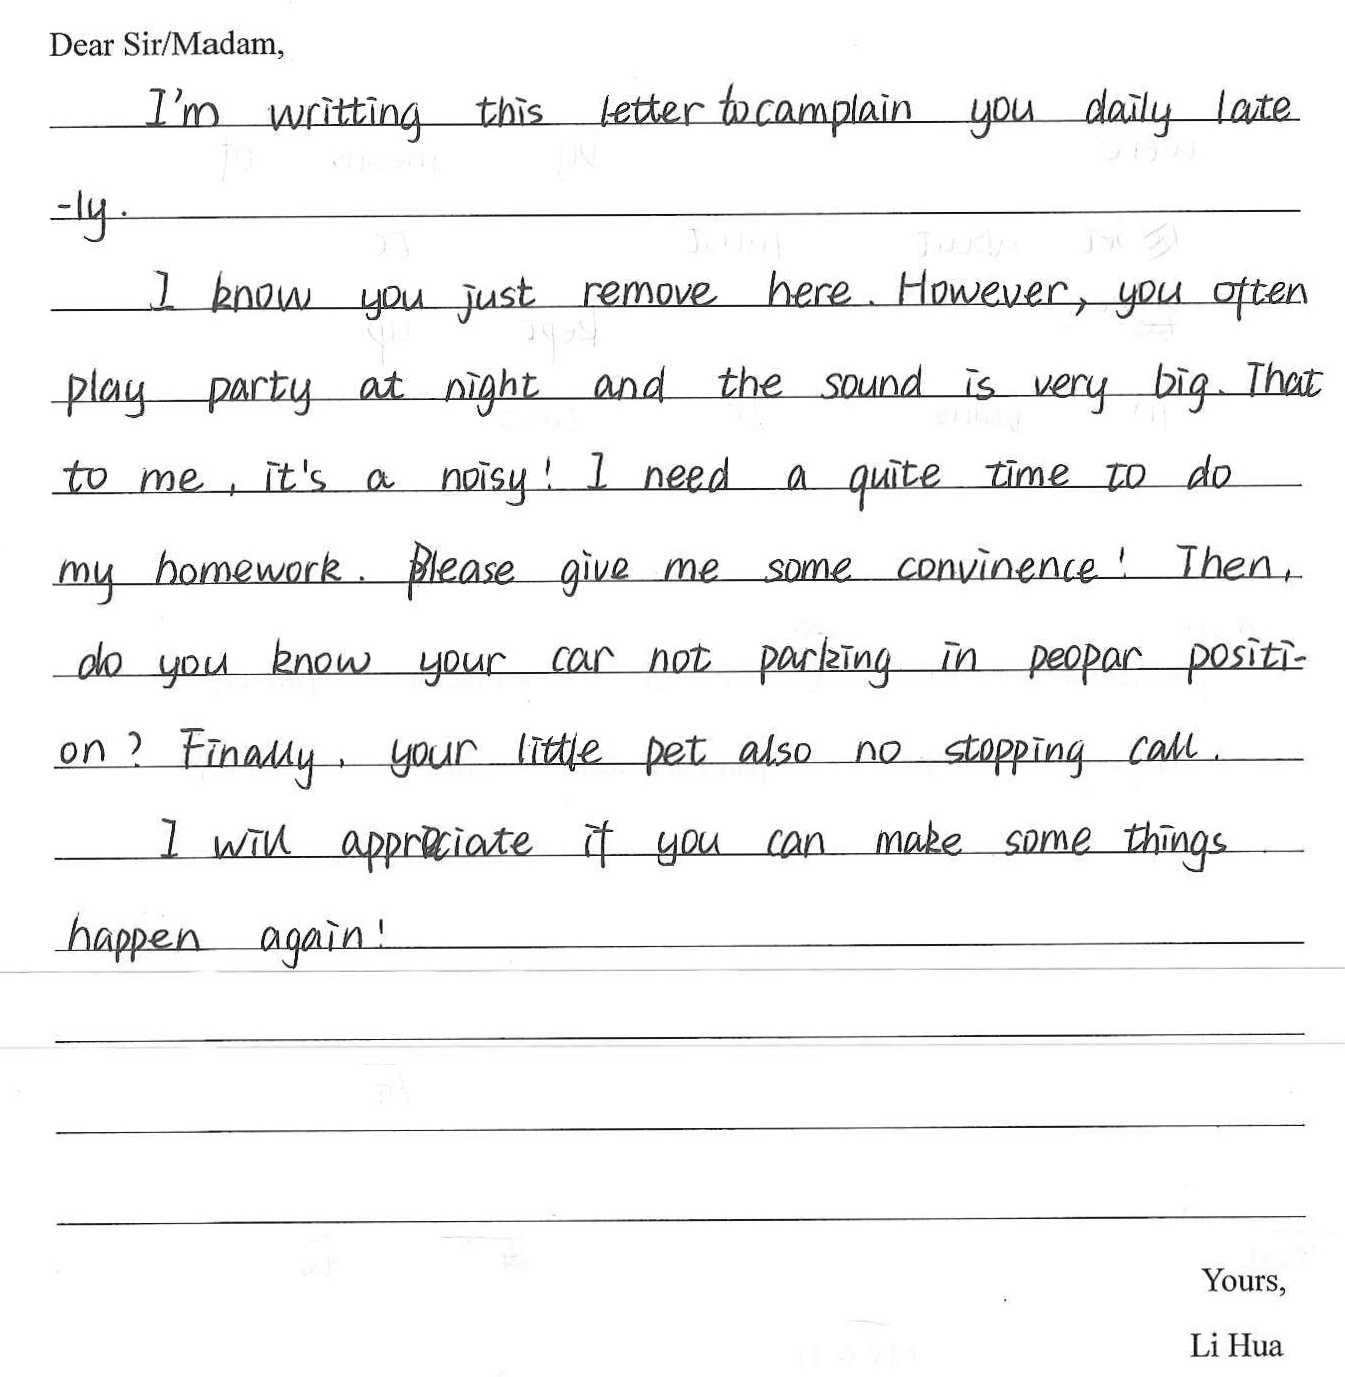 Dear Sir/Madam,
I'm writting this letter to camplain you daily late
-ly.
I know you just remove here. However, you often
play party at night and the sound is very big. That
to me, it's a noisy! I need a quite time to do
my homework. Please give me some convinence! Then,
do you know your car not parking in peopar positi-
on? Finally, your little pet also no stopping call.
I will appreciate if you can make some things
happen again!
Yours,
Li Hua